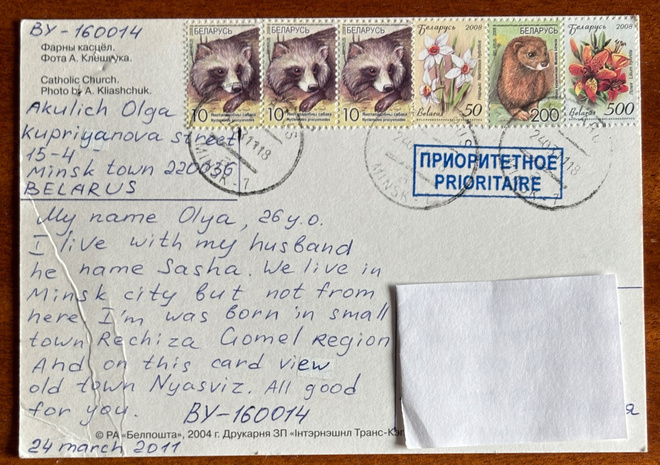 BY-160014
Фарны касцёл.
Фота А. Клешчука.
Catholic Church.
Photo by A. Kliashchuk.
Akulich Olga
Kupriyanova street
15-4
Minsk town 220036
BELARUS
БЕЛАРУСЬ
10
БЕЛАРУСЬ
10
БЕЛАРУСЬ
10
Беларусь 2008
Belarus 50
БЕЛАРУСЬ
200
Беларусь 2008
Belarus 500
MINSK-7
ПРИОРИТЕТНОЕ
PRIORITAIRE
My name Olya, 26 y.o.
I live with my husband
he name Sasha. We live in
Minsk city but not from
here I'm was born in small
town Rechiza Gomel Region
And on this card view
old town Nyasviz. All good
for you. BY-160014
© РА «Белпошта», 2004 г. Друкарня ЗП «Інтэрнэшнл Транс-
24 march 2011